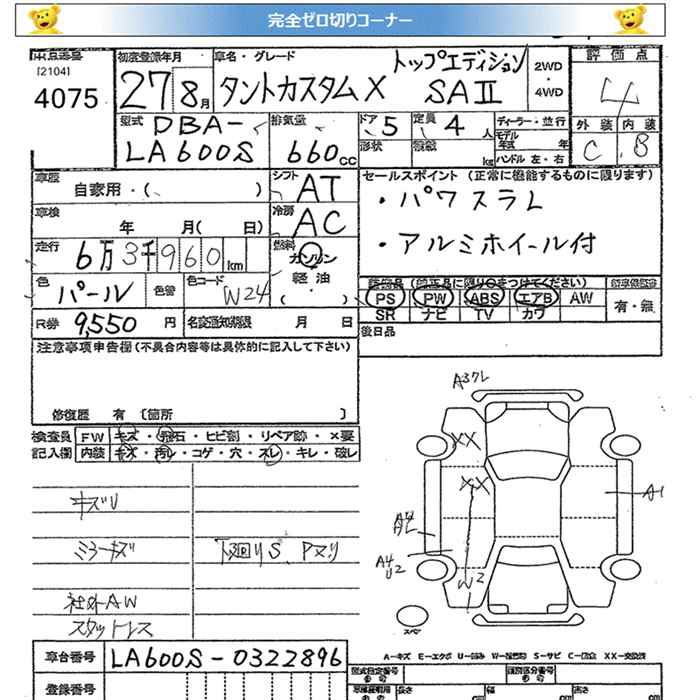 完全ゼロ切りコーナー
出品番号 初度登録年月 車名・グレード 評価点
[2104]
4075
27 8月 タントカスタムX トップエディション SAⅡ 2WD ・4WD 4
型式 排気量 ドア 定員 ディーラー・並行 外装 内装
DBA-LA600S 660cc 5 4人 形状 積載 kg モデル年式 年 ハンドル 左・右 C B
車歴 自家用・( ) シフト AT
車検 年 月( 日) 冷房 AC
走行 6万3千960km 燃料 ガソリン 軽油 ・( )
色 パール 色替 色コード W24
R券 9,550円 名変通知期限 月 日
セールスポイント (正常に機能するものに限ります)
・パワスラL
・アルミホイール付
PS PW ABS エアB AW 有・無
SR ナビ TV カワ
後日品
注意事項申告欄(不具合内容等は具体的に記入して下さい)
修復歴 有 〔箇所 〕
検査員 FW キズ・飛石・ヒビ割・リペア跡・×要
記入欄 内装 キズ・汚レ・コゲ・穴・スレ・キレ・破レ
キズU
ミラーキズ 下廻りS、Pヌリ
社外AW
スタットレス
A3クレ
XX
XX
A1
A2
A4
U2
W2
スペア
A-キズ E-エクボ U-凹み W-補修跡 S-サビ C-腐食 XX-交換済
車台番号 LA600S-0322896
登録番号
型式指定番号 類別区分番号
長さ cm 幅 cm 高さ cm